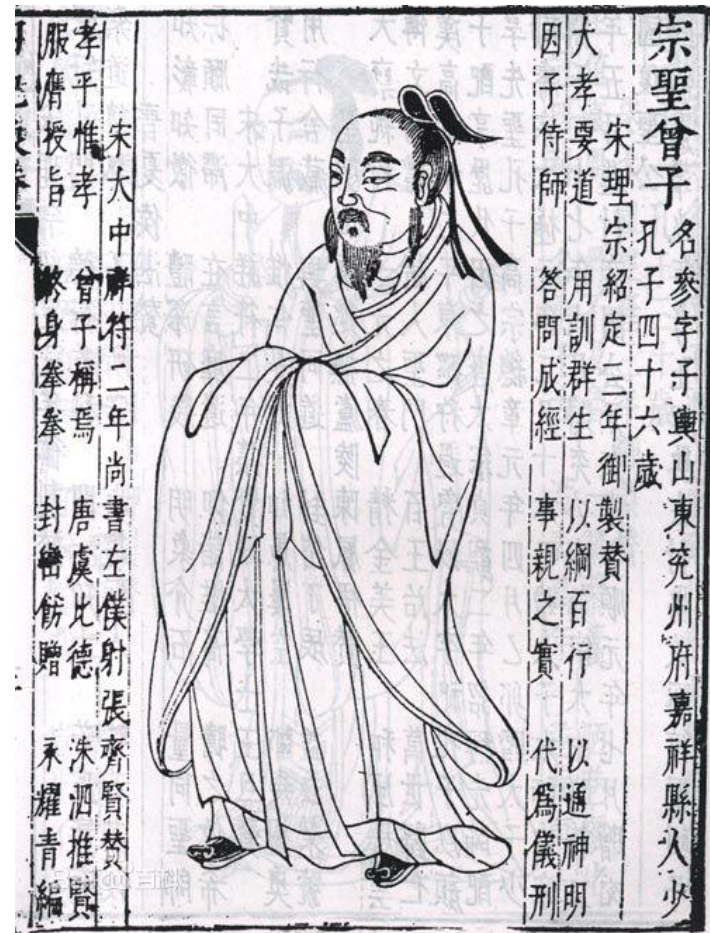 宗聖曾子 名參字子輿山東兖州府嘉祥縣人少
孔子四十六歲
宋理宗紹定三年御製賛
大孝要道 用訓群生 以綱百行 以通神明
因子侍師 答問成經 事親之實 代爲儀刑
宋大中祥符二年尚書左僕射張齊賢賛
孝乎惟孝 曾子稱焉 唐虞比德 洙泗推賢
服膺授旨 終身拳拳 封巒飭贈 永耀青編